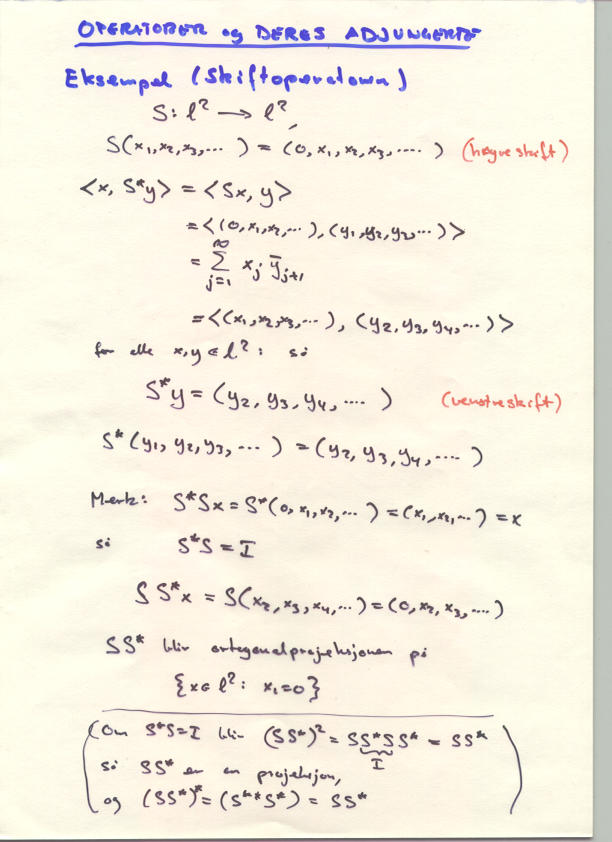 OPERATORER og DERES ADJUNGERTE
Eksempel (Skiftoperatoren)
S: ℓ² → ℓ²,
S(x₁, x₂, x₃, ···) = (0, x₁, x₂, x₃, ····) (høyreskift)
<x, S*y> = <Sx, y>
= <(0, x₁, x₂, ···), (y₁, y₂, y₃, ···)>
= ∑_{j=1}^{∞} x_j ȳ_{j+1}
= <(x₁, x₂, x₃, ···), (y₂, y₃, y₄, ···)>
for alle x, y ∈ ℓ²: så
S*y = (y₂, y₃, y₄, ····) (venstreskift)
S*(y₁, y₂, y₃, ···) = (y₂, y₃, y₄, ····)
Merk: S*Sx = S*(0, x₁, x₂, ···) = (x₁, x₂, ···) = x
så S*S = I
SS*x = S(x₂, x₃, x₄, ···) = (0, x₂, x₃, ····)
SS* blir ortogonalprojeksjonen på
{x ∈ ℓ²: x₁ = 0}
(Om S*S = I blir (SS*)² = SS*SS* = SS*
I
så SS* er en projeksjon,
og (SS*)* = (S**S*) = SS*)